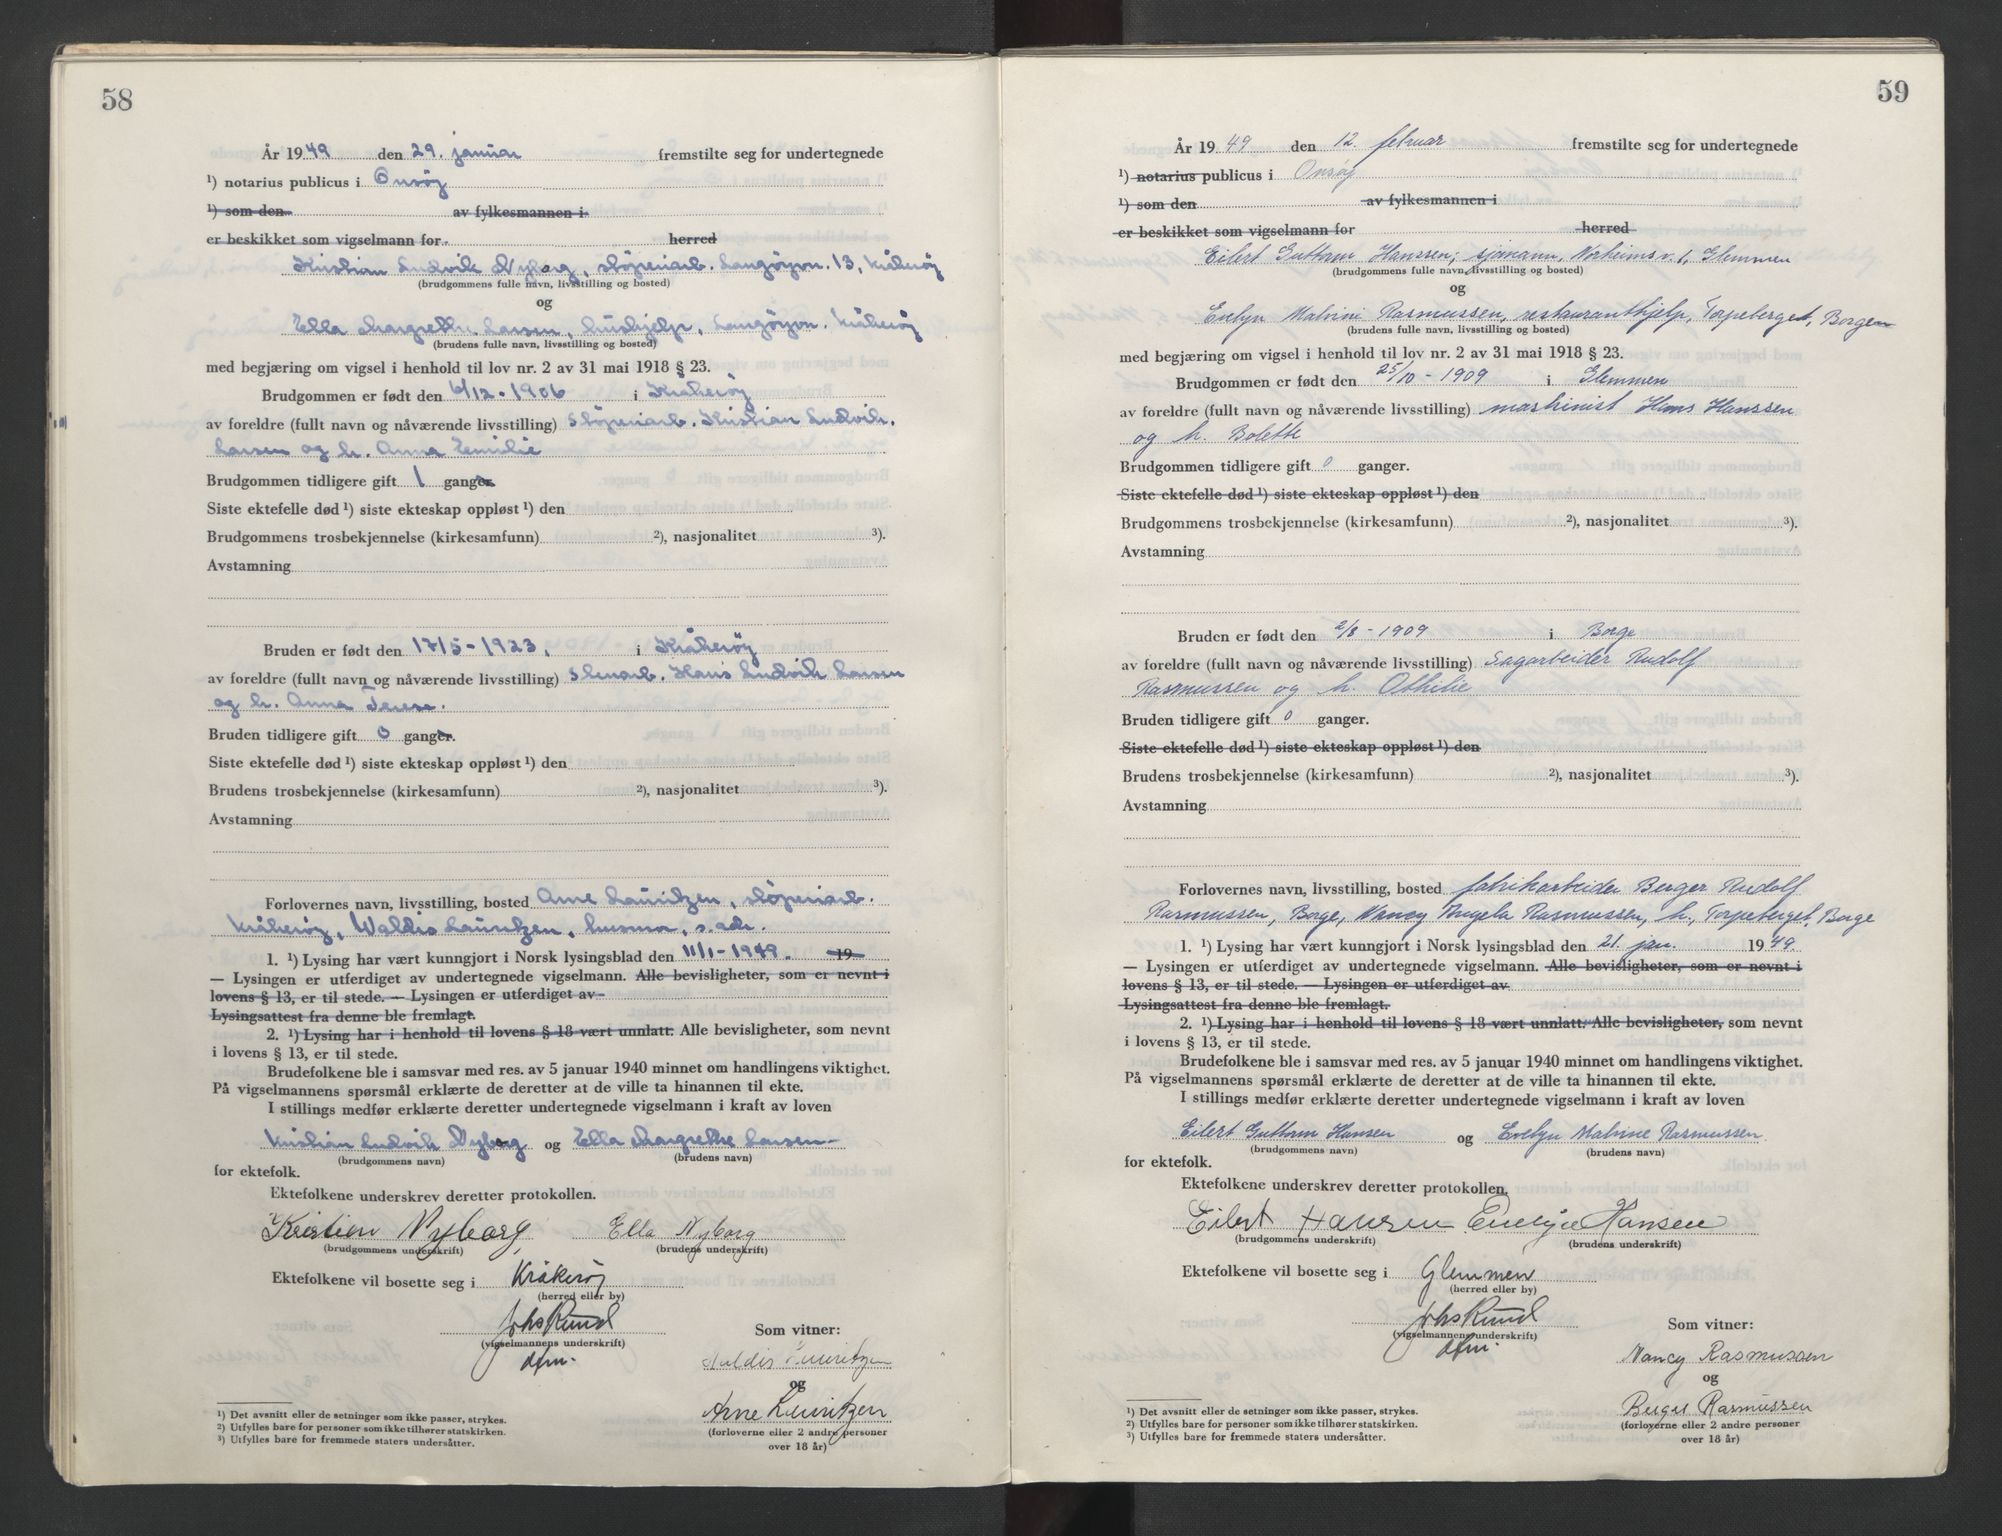 58
År 1949 den 29. januar fremstilte seg for undertegnede
¹) notarius publicus i Onsøy
¹) som den av fylkesmannen i
er beskikket som vigselmann for herred
Kristian Ludvik Nyborg, støperiarb. Langøyvn. 13, Kråkerøy
(brudgommens fulle navn, livsstilling og bosted)
og
Ella Margrethe Larsen, hushjelp, Langøyvn. Kråkerøy
(brudens fulle navn, livsstilling og bosted)
med begjæring om vigsel i henhold til lov nr. 2 av 31 mai 1918 § 23.
Brudgommen er født den 6/12-1906 i Kråkerøy
av foreldre (fullt navn og nåværende livsstilling) støperiarb. Kristian Ludvik
Larsen og h. Anna Emilie
Brudgommen tidligere gift 1 ganger.
Siste ektefelle død ¹) siste ekteskap oppløst ¹) den
Brudgommens trosbekjennelse (kirkesamfunn) ²), nasjonalitet ³).
Avstamning
Bruden er født den 17/5-1923, i Kråkerøy
av foreldre (fullt navn og nåværende livsstilling) stenarb. Hans Ludvik Larsen
og h. Anna
Bruden tidligere gift 0 ganger.
Siste ektefelle død ¹) siste ekteskap oppløst ¹) den
Brudens trosbekjennelse (kirkesamfunn) ²), nasjonalitet ³).
Avstamning
Forlovernes navn, livsstilling, bosted Arne Lauritzen, støperiarb.
Kråkerøy, Waldis Lauritzen, husmor, s. adr.
1. ¹) Lysing har vært kunngjort i Norsk lysingsblad den 11/1-1949. 19
— Lysingen er utferdiget av undertegnede vigselmann. Alle bevisligheter, som er nevnt i
lovens § 13, er til stede. — Lysingen er utferdiget av
Lysingsattest fra denne ble fremlagt.
2. ¹) Lysing har i henhold til lovens § 18 vært unnlatt. Alle bevisligheter, som nevnt
i lovens § 13, er til stede.
Brudefolkene ble i samsvar med res. av 5 januar 1940 minnet om handlingens viktighet.
På vigselmannens spørsmål erklærte de deretter at de ville ta hinannen til ekte.
I stillings medfør erklærte deretter undertegnede vigselmann i kraft av loven
Kristian Ludvik Nyborg og Ella Margrethe Larsen
(brudgommens navn) (brudens navn)
for ektefolk.
Ektefolkene underskrev deretter protokollen.
Kristian Nyborg Ella Nyborg
(brudgommens underskrift) (brudens underskrift)
Ektefolkene vil bosette seg i Kråkerøy
(herred eller by)
Johs Rund
(vigselmannens underskrift) Som vitner:
dfm.
Lauritzen
og
Arne Lauritzen
(forloverne eller 2 andre personer
over 18 år)
¹) Det avsnitt eller de setninger som ikke passer, strykes.
²) Utfylles bare for personer som ikke tilhører statskirken.
³) Utfylles bare for fremmede staters undersåtter.
59
År 1949 den 12. februar fremstilte seg for undertegnede
¹) notarius publicus i Onsøy
¹) som den av fylkesmannen i
er beskikket som vigselmann for herred
Eilert Guttorm Hanssen, sjømann, Norheimsv. 1, Glemmen
(brudgommens fulle navn, livsstilling og bosted)
og
Evelyn Malvine Rasmussen, restauranthjelp, Torpeberget, Borgen
(brudens fulle navn, livsstilling og bosted)
med begjæring om vigsel i henhold til lov nr. 2 av 31 mai 1918 § 23.
Brudgommen er født den 25/10-1909 i Glemmen
av foreldre (fullt navn og nåværende livsstilling) maskinist Hans Hanssen
og h. Bolette
Brudgommen tidligere gift 0 ganger.
Siste ektefelle død ¹) siste ekteskap oppløst ¹) den
Brudgommens trosbekjennelse (kirkesamfunn) ²), nasjonalitet ³).
Avstamning
Bruden er født den 2/8-1909 i Borge
av foreldre (fullt navn og nåværende livsstilling) sagarbeider Rudolf
Rasmussen og h. Othilie
Bruden tidligere gift 0 ganger.
Siste ektefelle død ¹) siste ekteskap oppløst ¹) den
Brudens trosbekjennelse (kirkesamfunn) ²), nasjonalitet ³).
Avstamning
Forlovernes navn, livsstilling, bosted fabrikarbeider Berger Rudolf
Rasmussen, Borge, Nancy Angela Rasmussen, h., Torpeberget, Borge
1. ¹) Lysing har vært kunngjort i Norsk lysingsblad den 21. jan. 1949.
— Lysingen er utferdiget av undertegnede vigselmann. Alle bevisligheter, som er nevnt i
lovens § 13, er til stede. — Lysingen er utferdiget av
Lysingsattest fra denne ble fremlagt.
2. ¹) Lysing har i henhold til lovens § 18 vært unnlatt. Alle bevisligheter, som nevnt
i lovens § 13, er til stede.
Brudefolkene ble i samsvar med res. av 5 januar 1940 minnet om handlingens viktighet.
På vigselmannens spørsmål erklærte de deretter at de ville ta hinannen til ekte.
I stillings medfør erklærte deretter undertegnede vigselmann i kraft av loven
Eilert Guttorm Hansen og Evelyn Malvine Rasmussen
(brudgommens navn) (brudens navn)
for ektefolk.
Ektefolkene underskrev deretter protokollen.
Eilert Hansen Evelyn Hansen
(brudgommens underskrift) (brudens underskrift)
Ektefolkene vil bosette seg i Glemmen
(herred eller by)
Johs Rund
(vigselmannens underskrift) Som vitner:
dfm.
Nancy Rasmussen
og
Berger Rasmussen
(forloverne eller 2 andre personer
over 18 år)
¹) Det avsnitt eller de setninger som ikke passer, strykes.
²) Utfylles bare for personer som ikke tilhører statskirken.
³) Utfylles bare for fremmede staters undersåtter.